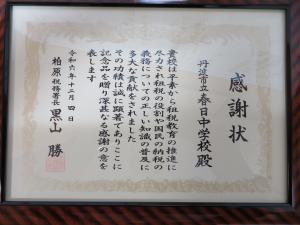 感謝状
丹波市立春日中学校殿
貴校は平素から租税教育の推進に
尽力され租税の役割や国民の納税の
義務についての正しい知識の普及に
多大な貢献をされました
その功績は誠に顕著でありここに
記念品を贈り深甚なる感謝の意を
表します
令和六年十二月四日
柏原税務署長 黒山勝